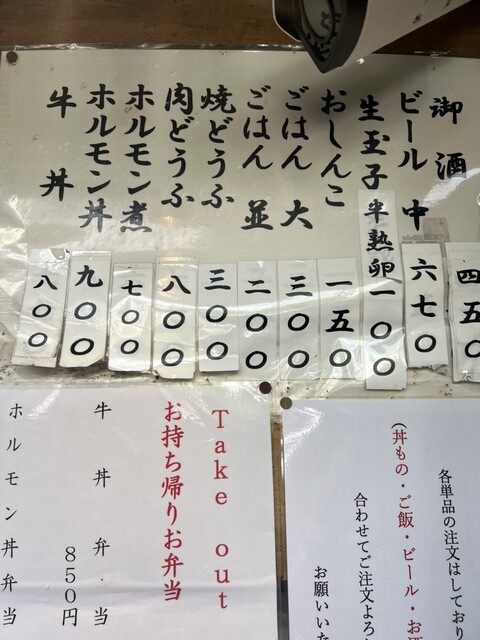 御酒 四五〇
ビール 中 六七〇
生玉子 半熟卵 一〇〇
おしんこ 一五〇
ごはん 大 三〇〇
ごはん 並 二〇〇
焼どうふ 三〇〇
肉どうふ 八〇〇
ホルモン煮 七〇〇
ホルモン丼 九〇〇
牛丼 八〇〇
Take out
お持ち帰りお弁当
牛丼弁当
850円
ホルモン丼弁当
各単品の注文はしており
(丼もの・ご飯・ビール・お酒
合わせてご注文よろ
お願いいた